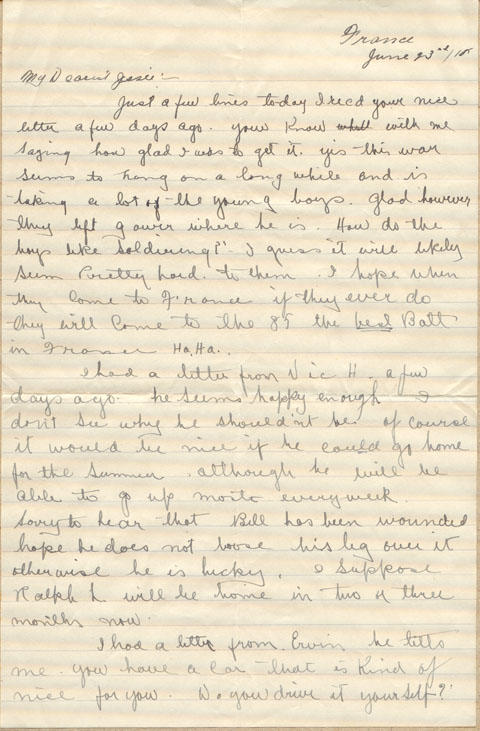 France
June 23rd/18
My Dearest Jessie:-
Just a few lines today I recd your nice
letter a few days ago. you know with me
saying how glad I was to get it. yis this war
seems to hang on a long while and is
taking a lot of the young boys. Glad however
they left Gower where he is. How do the
boys like Soldiering?". I guess it will likely
seem Pretty hard to them. I hope when
they Come to France if they ever do
they will Come to the 85 the best Batt
in France Ha, Ha..
I had a letter from Vic H. a few
days ago. he seems happy enough I
don't see why he shouldn't be. of course
it would be nice if he could go home
for the Summer. although he will be
able to go up most everyweek.
Sorry to hear that Bill has been wounded
hope he does not loose his leg over it
otherwise he is lucky. I Suppose
Ralph L. will be home in two or three
months now.
I had a letter from Ervin he tells
me you have a car that is Kind of
nice for you. Do you drive it yourself?